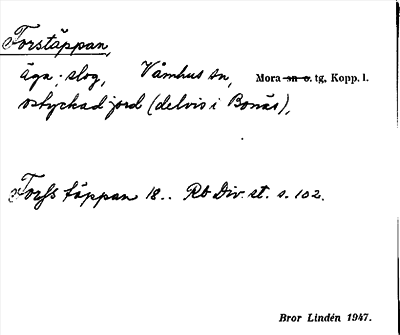 Forstäppan,
äga; slog, Våmhus sn, Mora sn o. tg, Kopp. l.
ostyckad jord (delvis i Bonäs),
Forss täppan 18.. Rb Div. st. s. 102.
Bror Lindén 1947.